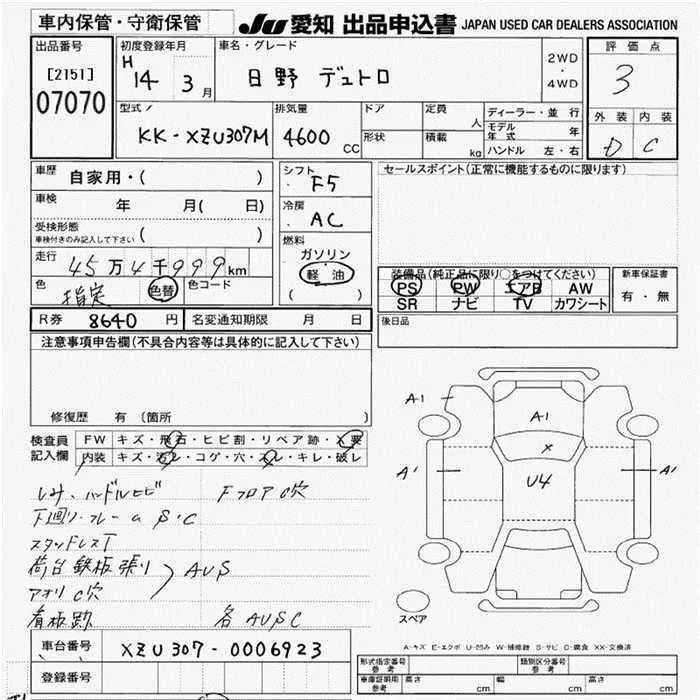 車内保管・守衛保管
JU 愛知 出品申込書 JAPAN USED CAR DEALERS ASSOCIATION
出品番号
[2151]
07070
初度登録年月
H 14 3 月
車名・グレード
日野 デュトロ
2WD
・
4WD
評価点
3
外装 内装
D C
型式
KK-XZU307M
排気量
4600 CC
ドア
形状
定員 人
積載 kg
ディーラー・並行
モデル年式 年
ハンドル 左・右
車歴 自家用・( )
車検 年 月( 日)
受検形態
車検付きのみ記入して下さい ( )
走行 45万4千999km
色 指定 色替 色コード
シフト
F5
冷房
AC
燃料
ガソリン
軽油
( )
セールスポイント(正常に機能するものに限ります)
装備品(純正品に限り○をつけてください)
PS PW エアB AW
SR ナビ TV カワシート
新車保証書
有・無
R券 8640 円 名変通知期限 月 日
後日品
注意事項申告欄(不具合内容等は具体的に記入して下さい)
修復歴 有 (箇所 )
検査員記入欄
FW キズ・飛石・ヒビ割・リペア跡・X要
内装 キズ・汚レ・コゲ・穴・スレ・キレ・破レ
しみ、ハンドルヒビ Fフロア C穴
下回り・フレーム S・C
スタッドレスT
荷台鉄板張り
アオリ C穴
AUS
看板跡 各AUSC
A-1
A-1
X
U4
A'
A'
スペア
A-キズ E-エクボ U-凹み W-補修跡 S-サビ C-腐食 XX-交換済
車台番号 XZU307-0006923
登録番号
形式指定番号 参考
類別区分番号 参考
車庫証明用 参考 長さ cm 幅 cm 高さ cm